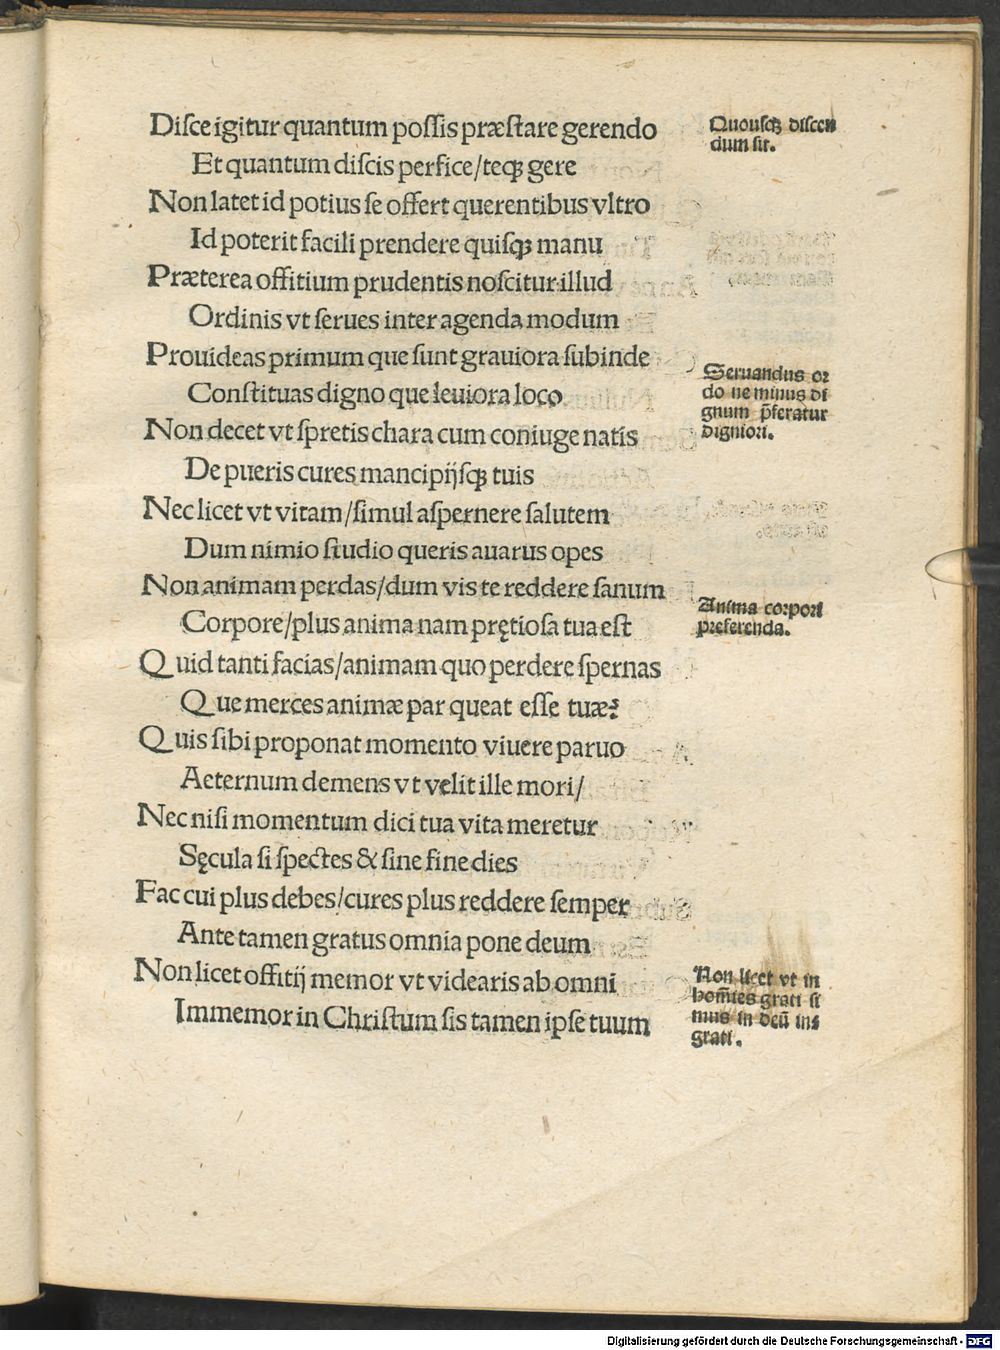 Diſce igitur quantum poſſis præſtare gerendo
Et quantum diſcis perfice/teqꝫ gere
Non latet id potius ſe offert querentibus vltro
Id poterit facili prendere quiſqꝫ manu
Præterea offitium prudentis noſcitur illud
Ordinis vt ſerues inter agenda modum
Prouideas primum que ſunt grauiora ſubinde
Conſtituas digno que leuiora loco
Non decet vt ſpretis chara cum coniuge natis
De pueris cures mancipijſqꝫ tuis
Nec licet vt vitam/ſimul aſpernere ſalutem
Dum nimio ſtudio queris auarus opes
Non animam perdas/dum vis te reddere ſanum
Corpore/plus anima nam prętioſa tua eſt
Quid tanti facias/animam quo perdere ſpernas
Que merces animæ par queat eſſe tuæ?
Quis ſibi proponat momento viuere paruo
Aeternum demens vt velit ille mori/
Nec niſi momentum dici tua vita meretur
Sęcula ſi ſpectes & ſine fine dies
Fac cui plus debes/cures plus reddere ſemper
Ante tamen gratus omnia pone deum
Non licet offitij memor vt videaris ab omni
Immemor in Chriſtum ſis tamen ipſe tuum
Quouſqꝫ diſcen
dum ſit.
Seruandus or
do ne minus di
gnum p̄feratur
digniori.
Anima corpori
preferenda.
Non licet vt in
hom̄ies grati ſi
mus in deū ins
grati.
Digitalisierung gefördert durch die Deutsche Forschungsgemeinschaft - DFG